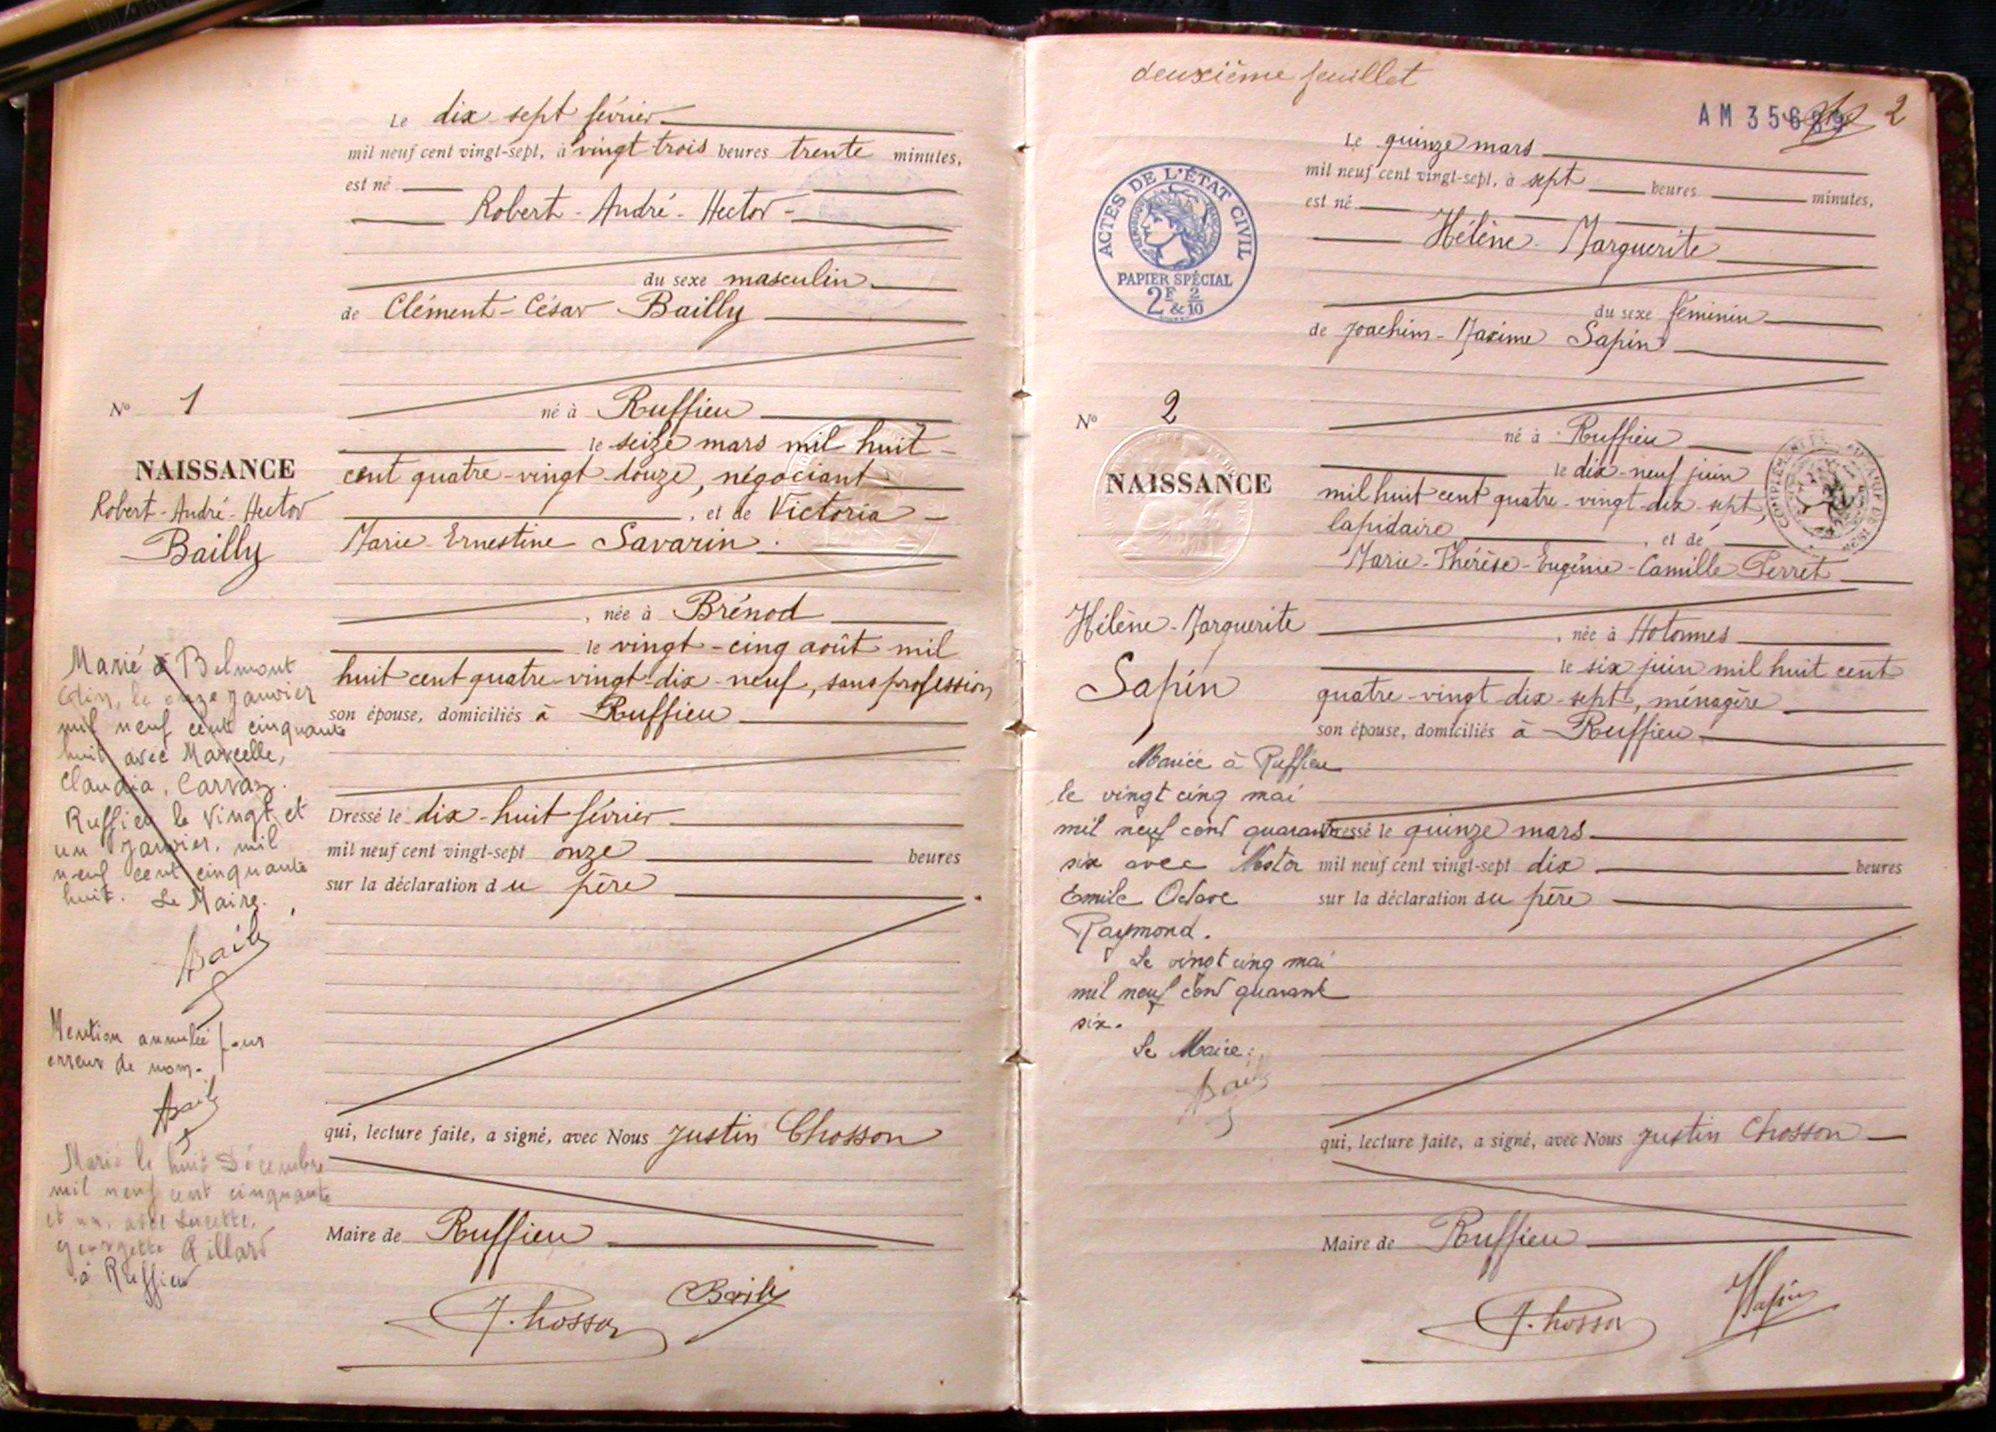 Le dix-sept février
mil neuf cent vingt-sept, à vingt trois heures trente minutes,
est né
Robert-André-Hector
du sexe masculin
de Clément-César Bailly
né à Ruffieu
le seize mars mil huit
cent quatre-vingt-douze, négociant
, et de Victoria
Marie-Ernestine Savarin.
, née à Brénod
le vingt-cinq août mil
huit cent quatre-vingt-dix-neuf, sans profession
son épouse, domiciliés à Ruffieu
Dressé le dix-huit février
mil neuf cent vingt-sept onze heures
sur la déclaration du père
qui, lecture faite, a signé, avec Nous Justin Chosson
Maire de Ruffieu
J. Chosson Bailly
No 1
NAISSANCE
Robert-André-Hector
Bailly
Marié à Belmont
le onze janvier
mil neuf cent cinquante
huit avec Marcelle,
Claudia, Carraz.
Ruffieu le vingt et
un janvier, mil
neuf cent cinquante
huit. Le Maire.
Bailly
Mention annulée pour
erreur de nom.
Bailly
Marié le huit Décembre
mil neuf cent cinquante
et un, avec Lucette,
Georgette
à Ruffieu
deuxième feuillet
AM 356 2
Le quinze mars
mil neuf cent vingt-sept, à sept heures minutes,
est né
Hélène-Marguerite
du sexe féminin
de Joachim-Maxime Sapin
né à Ruffieu
le dix-neuf juin
mil huit cent quatre-vingt-dix-sept,
lapidaire , et de
Marie-Thérèse-Eugénie-Camille Perret
, née à Hotonnes
le six juin mil huit cent
quatre-vingt dix-sept, ménagère
son épouse, domiciliés à Ruffieu
Dressé le quinze mars
mil neuf cent vingt-sept dix heures
sur la déclaration du père
qui, lecture faite, a signé, avec Nous Justin Chosson
Maire de Ruffieu
J. Chosson Sapin
ACTES DE L'ÉTAT CIVIL
PAPIER SPÉCIAL
2F & 2/10
No 2
NAISSANCE
Hélène-Marguerite
Sapin
Mariée à Ruffieu
le vingt cinq mai
mil neuf cent quarante
six avec
Emile Octave
Raymond.
Le vingt cinq mai
mil neuf cent quarante
six.
Le Maire:
Bailly